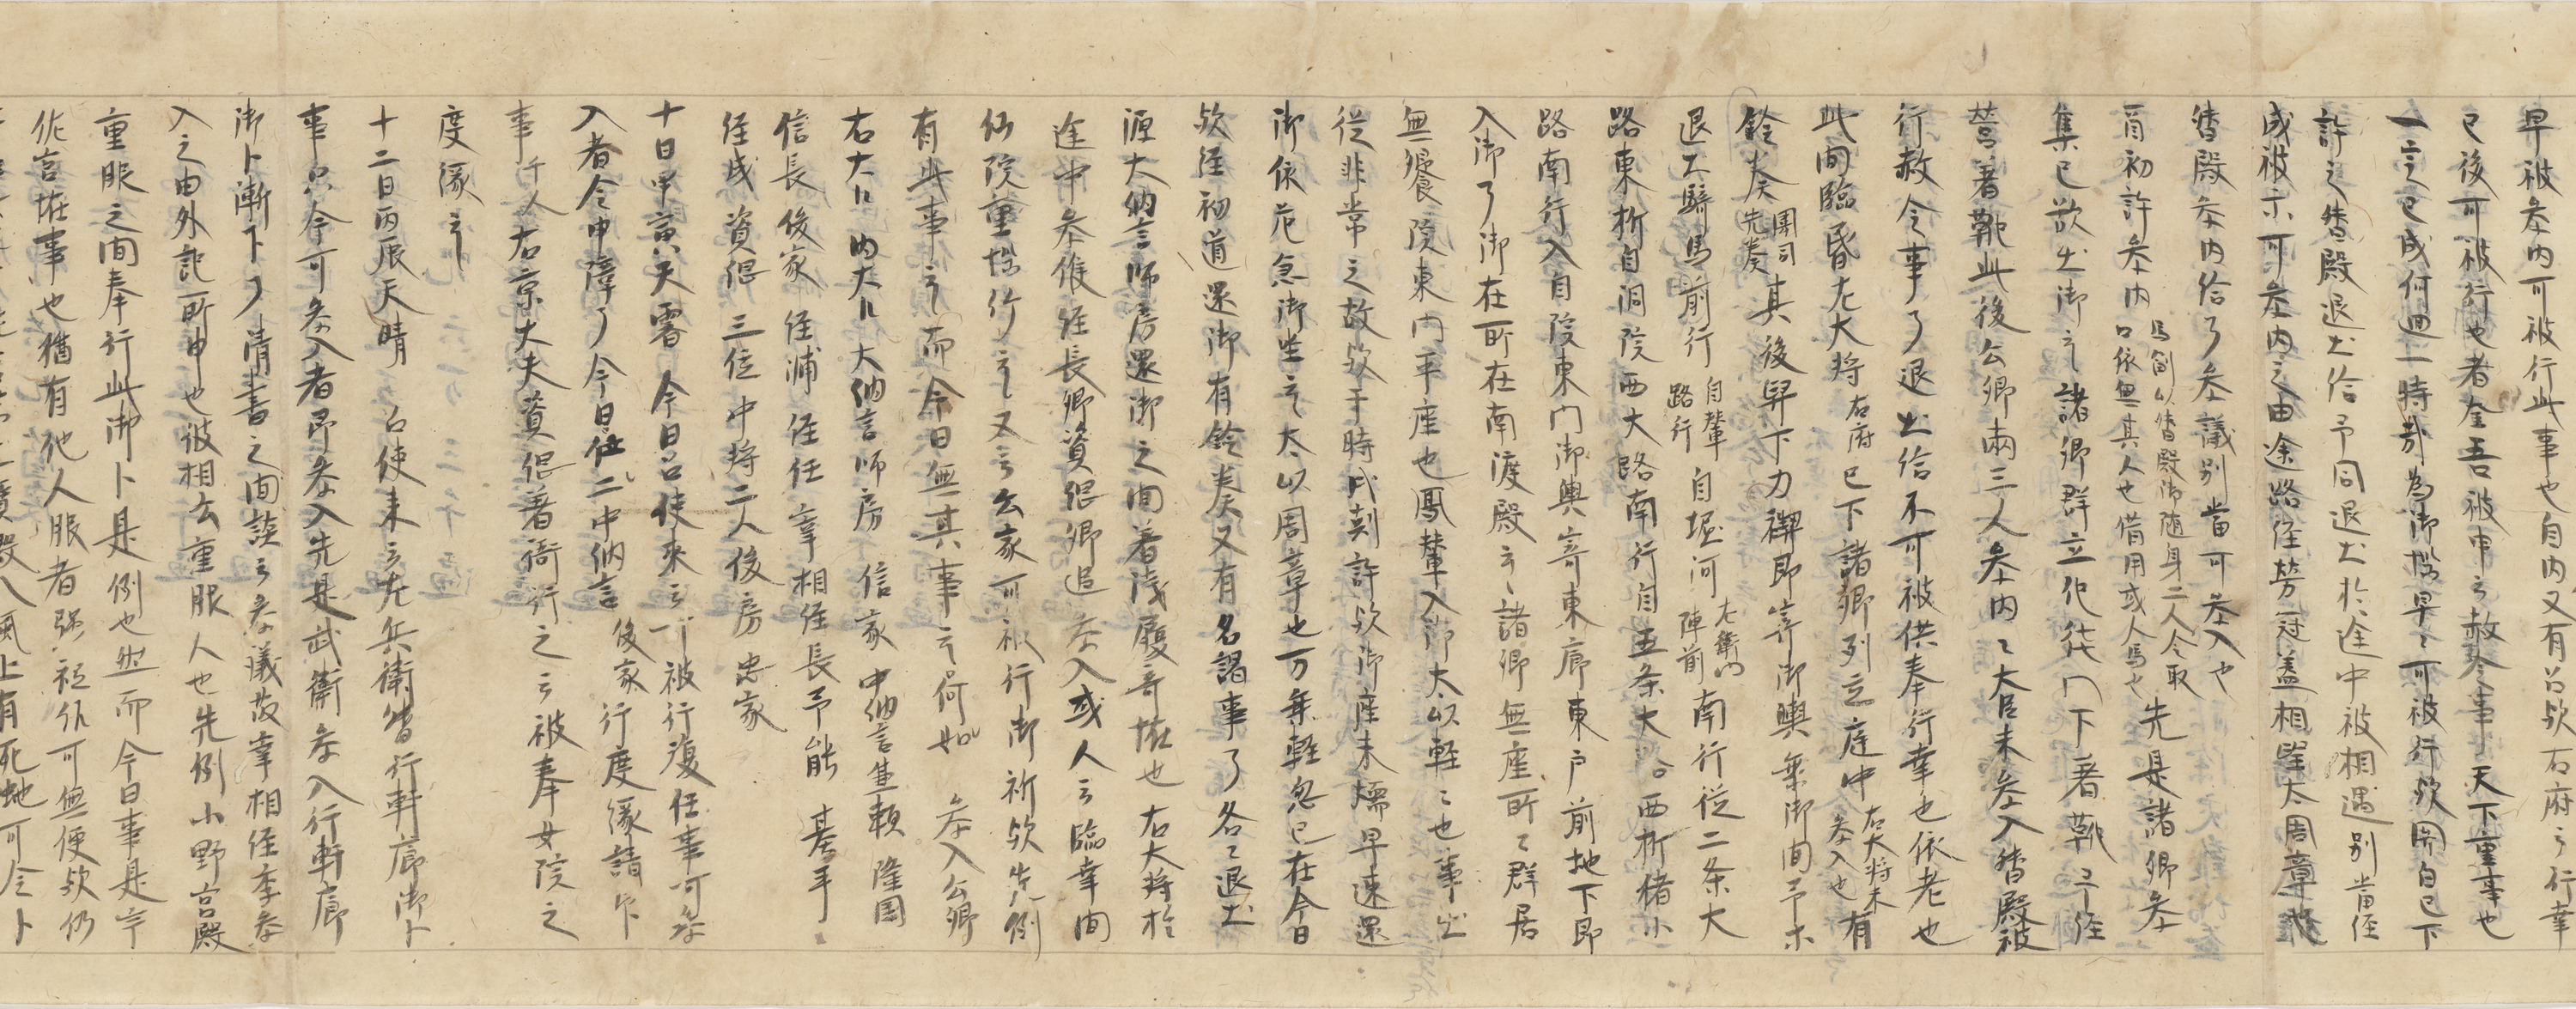 早被参内可被行此事也自内又有召欤右府云行幸
已後可被行也者金吾被申云赦令事天下重事也
一言已成何廻一時哉為御慎早々可被行欤関白已下
許之殿退出給予同退出於途中被相遇別当経
成被示可参内之由途路経営冠盖相望太周章也
殿参内給了参議別当可参入也
自初許参内
先是諸卿参
集已欲出御云々諸卿群立化徳門下著靴予経
営著靴此後公卿両三人参内々大臣未参入殿被
行赦令事了退出給不可被供奉行幸也依老也
此間臨昏左大将右府已下諸卿列立庭中右大将未参入也有
鈴奏闈司先奏其後舁下力禅即寄御輿乗御間予等
退出騎馬前行自輦路行自堀河左衛門陣前南行従二条大
路東折自洞院西大路南行自五条大路西折猪小
路南行入自院東門御輿寄東廊東戸前地下即
入御了御在所在南渡殿云々諸卿無座所々群居
無饗院東門平座也鳳輦入御太以軽々也事出
従非常之故欤于時戌剋許欤御座未煖早速還
御依危急御坐云々太以周章也万乗軽忽已在今日
欤経初道還御有鈴奏又有名謁事了各々退出
源大納言師房還御之間著浅履奇恠也右大将於
途中参候経長卿資綱卿追参入或人云臨幸間
仙院重悩給云々又云公家可被行御祈欤先例
有此事云々而今日無其事云々何如参入公卿
右大臣内大臣大納言師房信家中納言兼頼隆国
信長俊家経輔経任宰相経長予能基平
経成資綱三位中将二人俊房忠家
十日甲寅天霽今日召使来云可被行復任事可参
入者令申障了今日二中納言俊家行度縁請印
事千人右京大夫資綱著衙行之云々被奉女院之
度縁云々
十二日丙辰天晴召使来云左兵衛督行軒廊御卜
事只今可参入者即参入先是武衛参入行軒廊
御卜漸下了清書之間談云参議故宰相経季参
入之由外記所申也彼相公重服人也先例小野宮殿
重服之間奉行此御卜是例也然而今日事是宇
佐宮恠事也猶有他人服者強祗候可無便欤仍